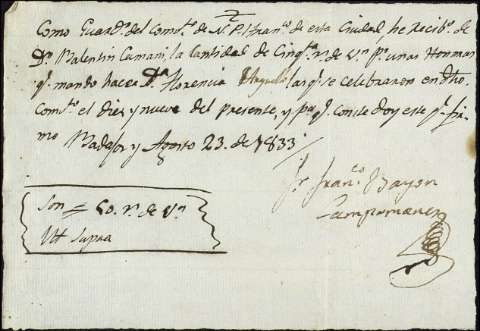 Como Guardn. del Convto. de N. P. Sn. Franco. de esta Ciudad he Recibo. de
Dn. Valentin Camani, la Cantidad de Cinqta. rs. de Vn. pr. unas Honrras
qe. mandó hacer Da. Florencia las qe. se celebraron en dho.
Convto. el diez y nueve del presente, y pa. qe. conste doy este qe. fir-
mo Badajoz y Agosto 23. de 1833
Fr. Franco. Bayon
Campomanes
Son = 50. rs. de Vn.
Ut Supra